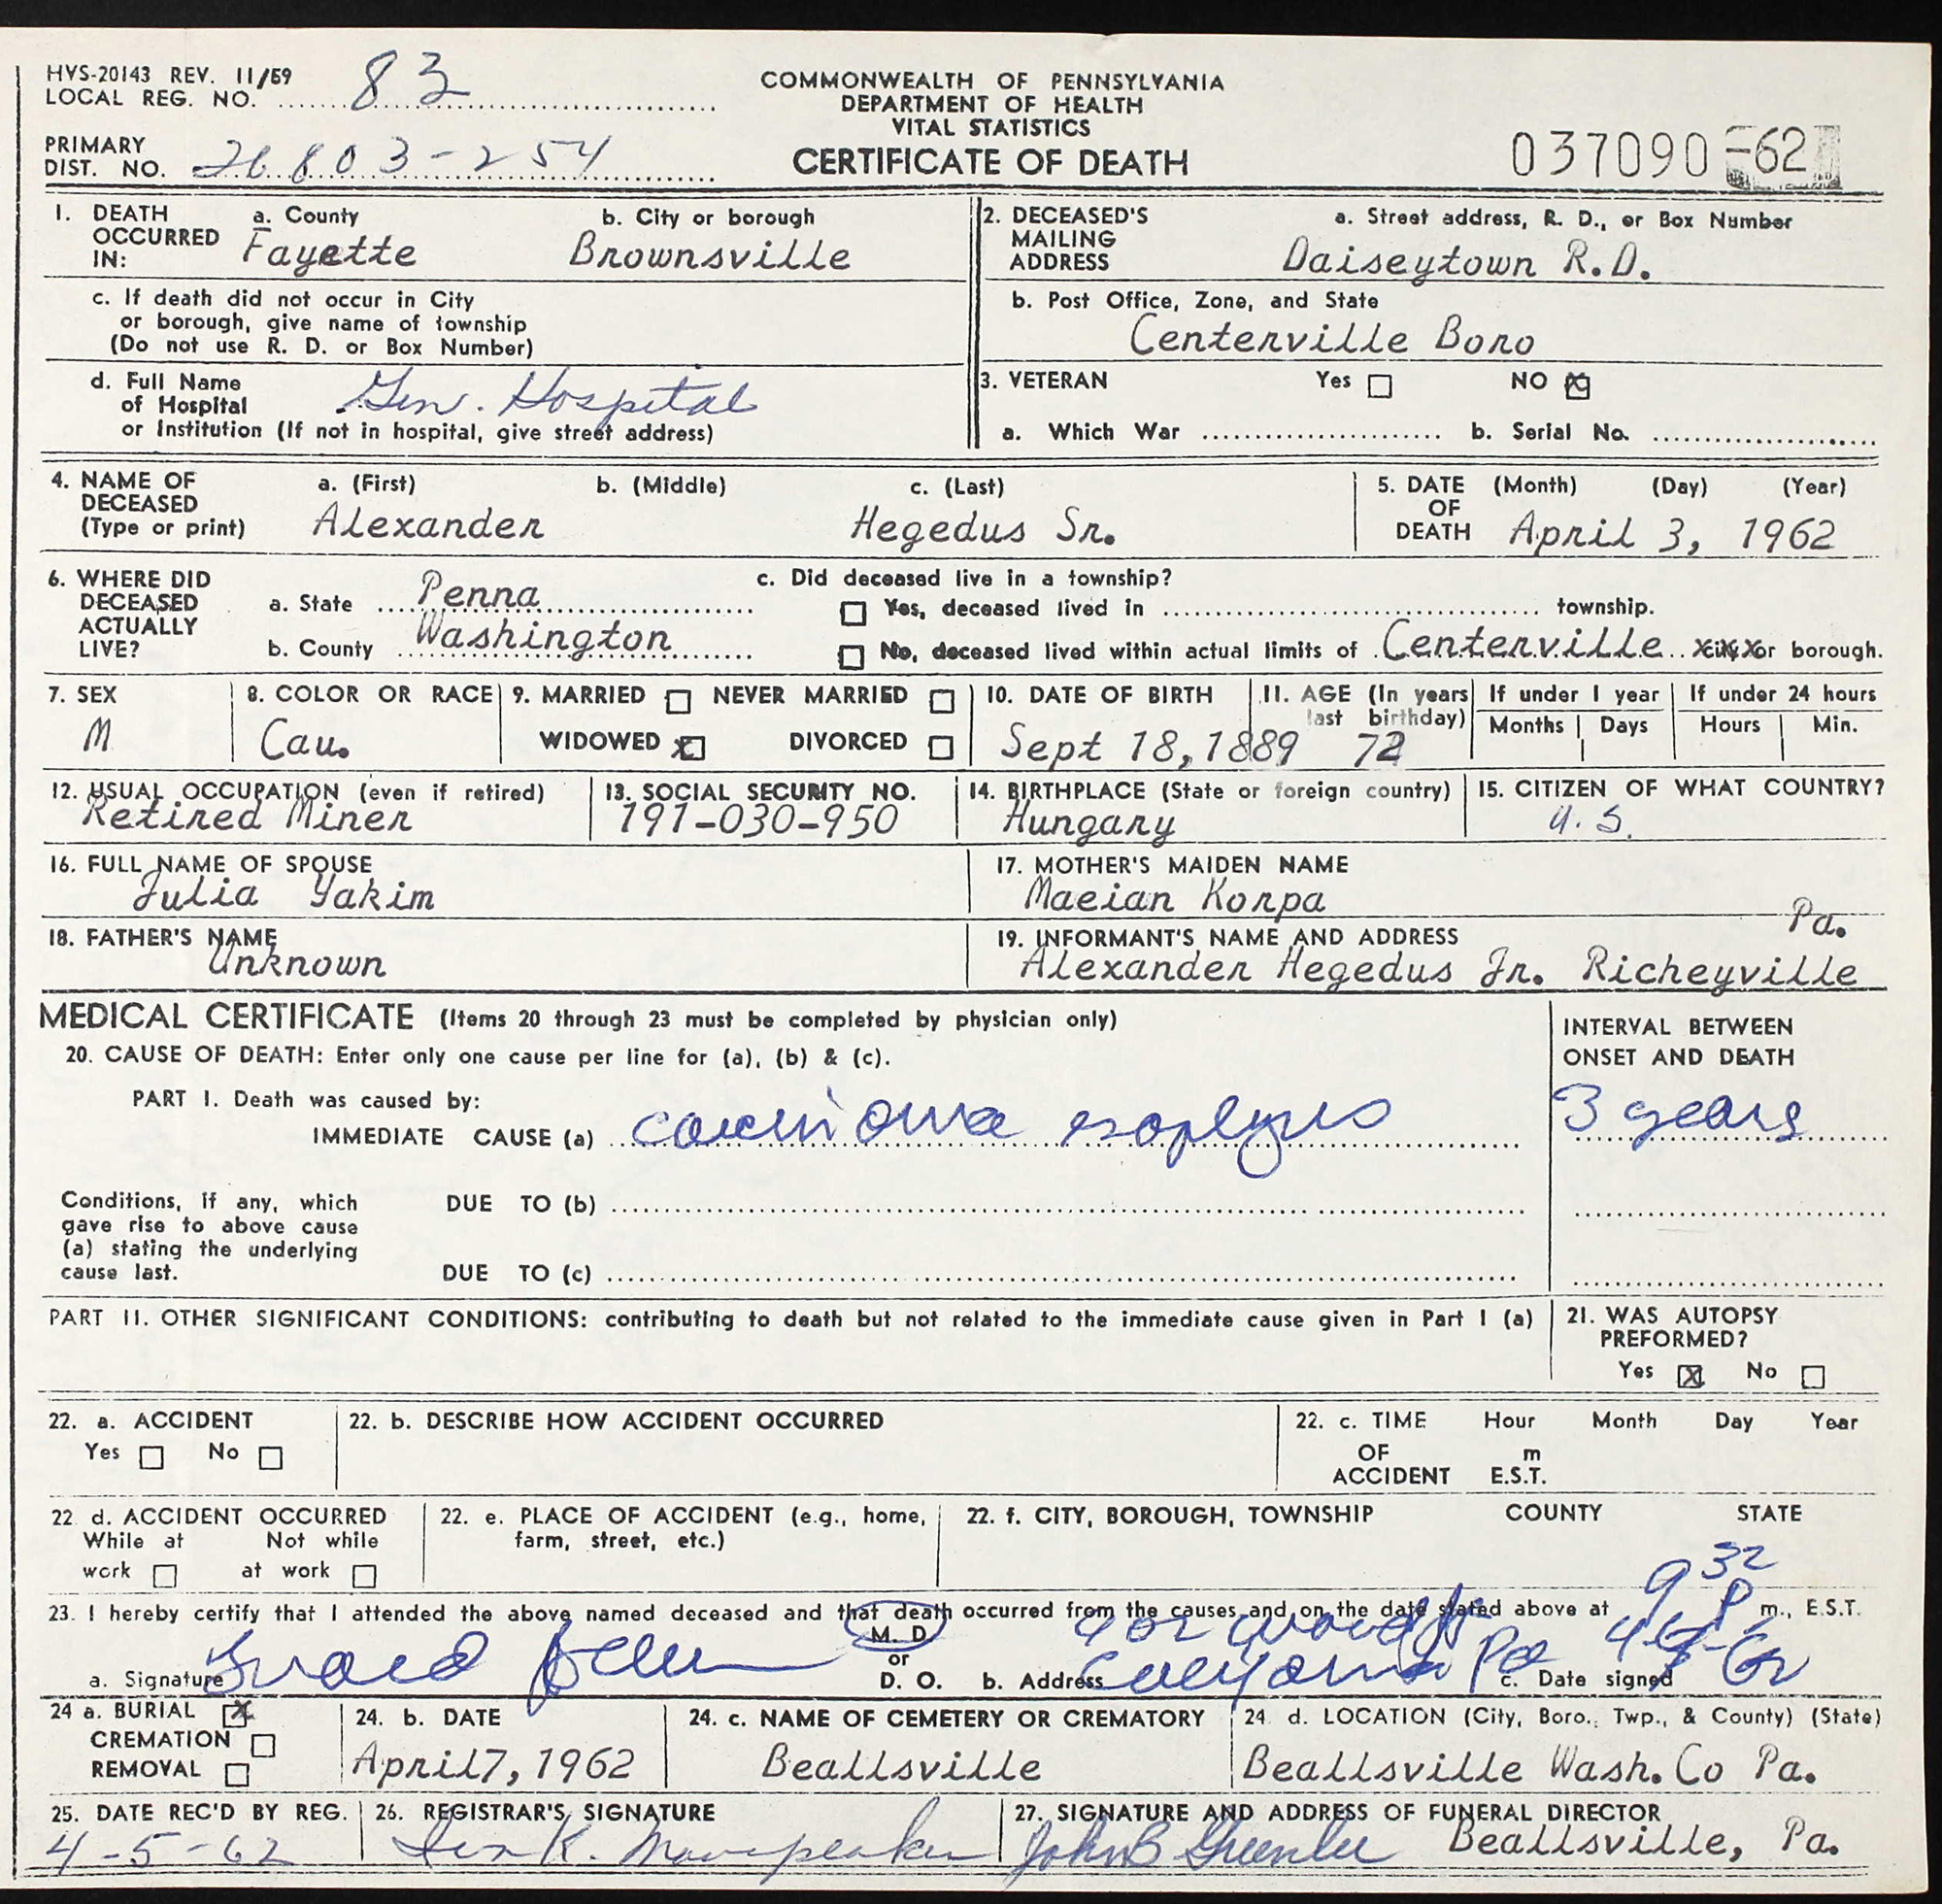 HVS-20143 REV. 11/59
LOCAL REG. NO. 83
COMMONWEALTH OF PENNSYLVANIA
DEPARTMENT OF HEALTH
VITAL STATISTICS
CERTIFICATE OF DEATH
PRIMARY
DIST. NO. 26803-254
037090-62
1. DEATH OCCURRED IN: a. County b. City or borough
Fayette Brownsville
c. If death did not occur in City
or borough, give name of township
(Do not use R. D. or Box Number)
d. Full Name
of Hospital Gen. Hospital
or Institution (If not in hospital, give street address)
2. DECEASED'S MAILING ADDRESS a. Street address, R. D., or Box Number
Daiseytown R.D.
b. Post Office, Zone, and State
Centerville Boro
3. VETERAN Yes NO X
a. Which War b. Serial No.
4. NAME OF DECEASED (Type or print) a. (First) b. (Middle) c. (Last)
Alexander Hegedus Sr.
5. DATE OF DEATH (Month) (Day) (Year)
April 3, 1962
6. WHERE DID DECEASED ACTUALLY LIVE?
a. State Penna
b. County Washington
c. Did deceased live in a township?
Yes, deceased lived in township.
No, deceased lived within actual limits of Centerville xxxx or borough.
7. SEX
M
8. COLOR OR RACE
Cau.
9. MARRIED NEVER MARRIED
WIDOWED X DIVORCED
10. DATE OF BIRTH
Sept 18, 1889
11. AGE (In years last birthday)
72
If under 1 year
Months Days
If under 24 hours
Hours Min.
12. USUAL OCCUPATION (even if retired)
Retired Miner
13. SOCIAL SECURITY NO.
191-030-950
14. BIRTHPLACE (State or foreign country)
Hungary
15. CITIZEN OF WHAT COUNTRY?
U.S.
16. FULL NAME OF SPOUSE
Julia Yakim
17. MOTHER'S MAIDEN NAME
Maeian Korpa
18. FATHER'S NAME
Unknown
19. INFORMANT'S NAME AND ADDRESS
Alexander Hegedus Jr. Richeyville Pa.
MEDICAL CERTIFICATE (Items 20 through 23 must be completed by physician only)
20. CAUSE OF DEATH: Enter only one cause per line for (a), (b) & (c).
INTERVAL BETWEEN
ONSET AND DEATH
PART I. Death was caused by:
IMMEDIATE CAUSE (a) carcinoma esophgus 3 years
Conditions, if any, which
gave rise to above cause
(a) stating the underlying
cause last.
DUE TO (b)
DUE TO (c)
PART II. OTHER SIGNIFICANT CONDITIONS: contributing to death but not related to the immediate cause given in Part I (a)
21. WAS AUTOPSY
PREFORMED?
Yes X No
22. a. ACCIDENT
Yes No
22. b. DESCRIBE HOW ACCIDENT OCCURRED
22. c. TIME OF ACCIDENT Hour Month Day Year
m
E.S.T.
22 d. ACCIDENT OCCURRED
While at work Not while at work
22. e. PLACE OF ACCIDENT (e.g., home,
farm, street, etc.)
22. f. CITY, BOROUGH, TOWNSHIP COUNTY STATE
23. I hereby certify that I attended the above named deceased and that death occurred from the causes and on the date stated above at 9 32 P m., E.S.T.
a. Signature M. D. or D. O.
b. Address California Pa
c. Date signed
24 a. BURIAL X
CREMATION
REMOVAL
24. b. DATE
April 7, 1962
24. c. NAME OF CEMETERY OR CREMATORY
Beallsville
24 d. LOCATION (City, Boro., Twp., & County) (State)
Beallsville Wash. Co Pa.
25. DATE REC'D BY REG.
4-5-62
26. REGISTRAR'S SIGNATURE
27. SIGNATURE AND ADDRESS OF FUNERAL DIRECTOR
John B Greenlee Beallsville, Pa.